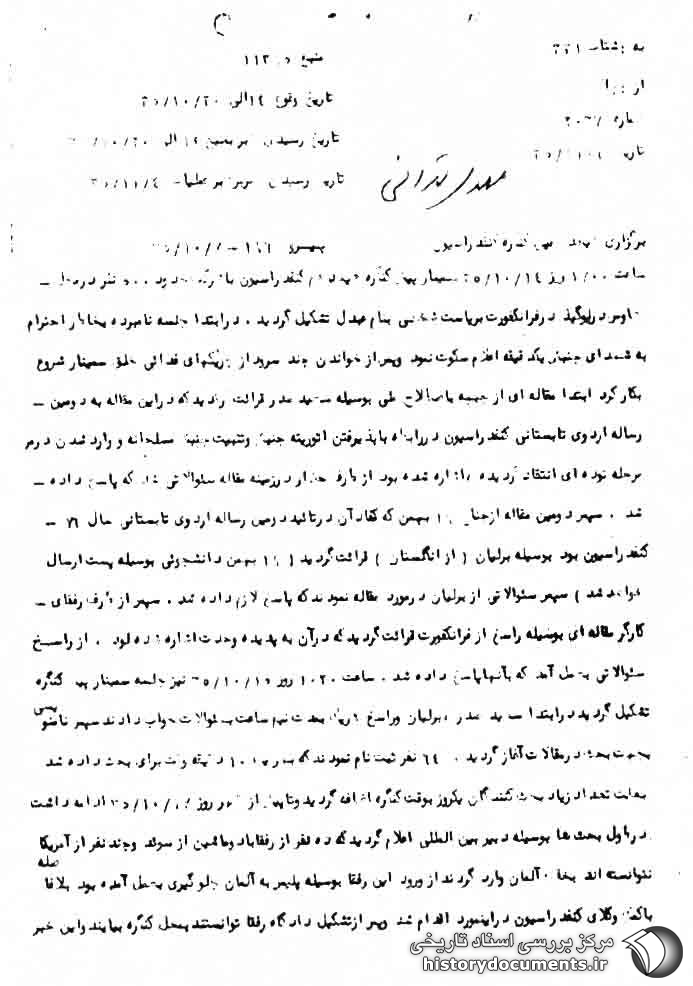 به : شناسه ۳۳۱
منبع : ۱۱۳
تاریخ وقوع ۱۴ الی ۳۵/۱۰/۲۰
تاریخ رسیدن خبر بمنبع ۱۴ الی
تاریخ رسیدن خبر برهبر عملیات ۳۵/۱۱/۴
مهدی تهرانی
برگزاری سمینار پیش کنگره کنفدراسیون
پیرو
ساعت روز ۳۵/۱۰/۱۴ سمینار پیش کنگره هیجدهم کنفدراسیون با شرکت حدود نفر در محل -
در فرانکفورت بریاست شخصی بنام عبدل تشکیل گردید . در ابتدا جلسه نامبرده بخاطر احترام
به شهدای جنبش یک دقیقه اعلام سکوت نمود وپس از خواندن چند سرود از چریکهای فدائی خلق سمینار شروع
بکار کرد ابتدا مقاله ای از جبهه باصطلاح ملی بوسیله سعید صدر قرائت گردید که در این مقاله به دومین -
رساله اردوی تابستانی کنفدراسیون در رابطه با پذیرفتن اتوریته جنبش وتثبیت جنبش مسلحانه و وارد شدن در مرز
مرحله توده ای انتقاد گردیده اشاره شده بود از طرف حضار در زمینه مقاله سئوالاتی شد که پاسخ داده -
شد . سپس دومین مقاله از جناح ۱۹ بهمن که مفاد آن در تائید دومین رساله اردوی تابستانی سال ۷۶ -
کنفدراسیون بود بوسیله برلیان ( از انگلستان ) قرائت گردید ( ۱۹ بهمن دانشجوئی بوسیله پست ارسال
خواهد شد ) سپس سئوالاتی از برلیان در مورد مقاله نمودند که پاسخ لازم داده شد . سپس از طرف رفقای -
کارگر مقاله ای بوسیله راسخ از فرانکفورت قرائت گردید که در آن به پدیده وحدت اشاره شده بود . از راسخ
سئوالاتی بعمل آمد که بآنها پاسخ داده شد . ساعت ۱۰۳۰ روز ۳۵/۱۰/۱۵ نیز جلسه سمینار پیش کنگره
تشکیل گردید در ابتدا سعید صدر ، برلیان و راسخ هریک بمدت نیم ساعت به سئوالات جواب دادند سپس تا شو
پسی
بجهت بحث در مقالات آغاز گردید . ۶۴ نفر ثبت نام نمودند که بهر یک ۱۰ دقیقه وقت برای بحث داده شد
بعلت تعداد زیاد بحث کنندگان یکروز بوقت کنگره اضافه گردید وتا پیش از ظهر روز ادامه داشت
در طول بحث ها بوسیله دبیر بین المللی اعلام گردید که ده نفر از رفقا باد وماشین از سوئد وچند نفر از آمریکا
نتوانسته اند بخاک آلمان وارد گردند از ورود این رفقا بوسیله پلیس به آلمان جلوگیری بعمل آمده بود بلافا
صله
باکمک وکلای کنفدراسیون در اینمورد اقدام شد وپس از تشکیل دادگاه رفقا توانستند بمحل کنگره بیایند واین خبر
مرکز بررسی اسناد تاریخی
historydocuments.ir